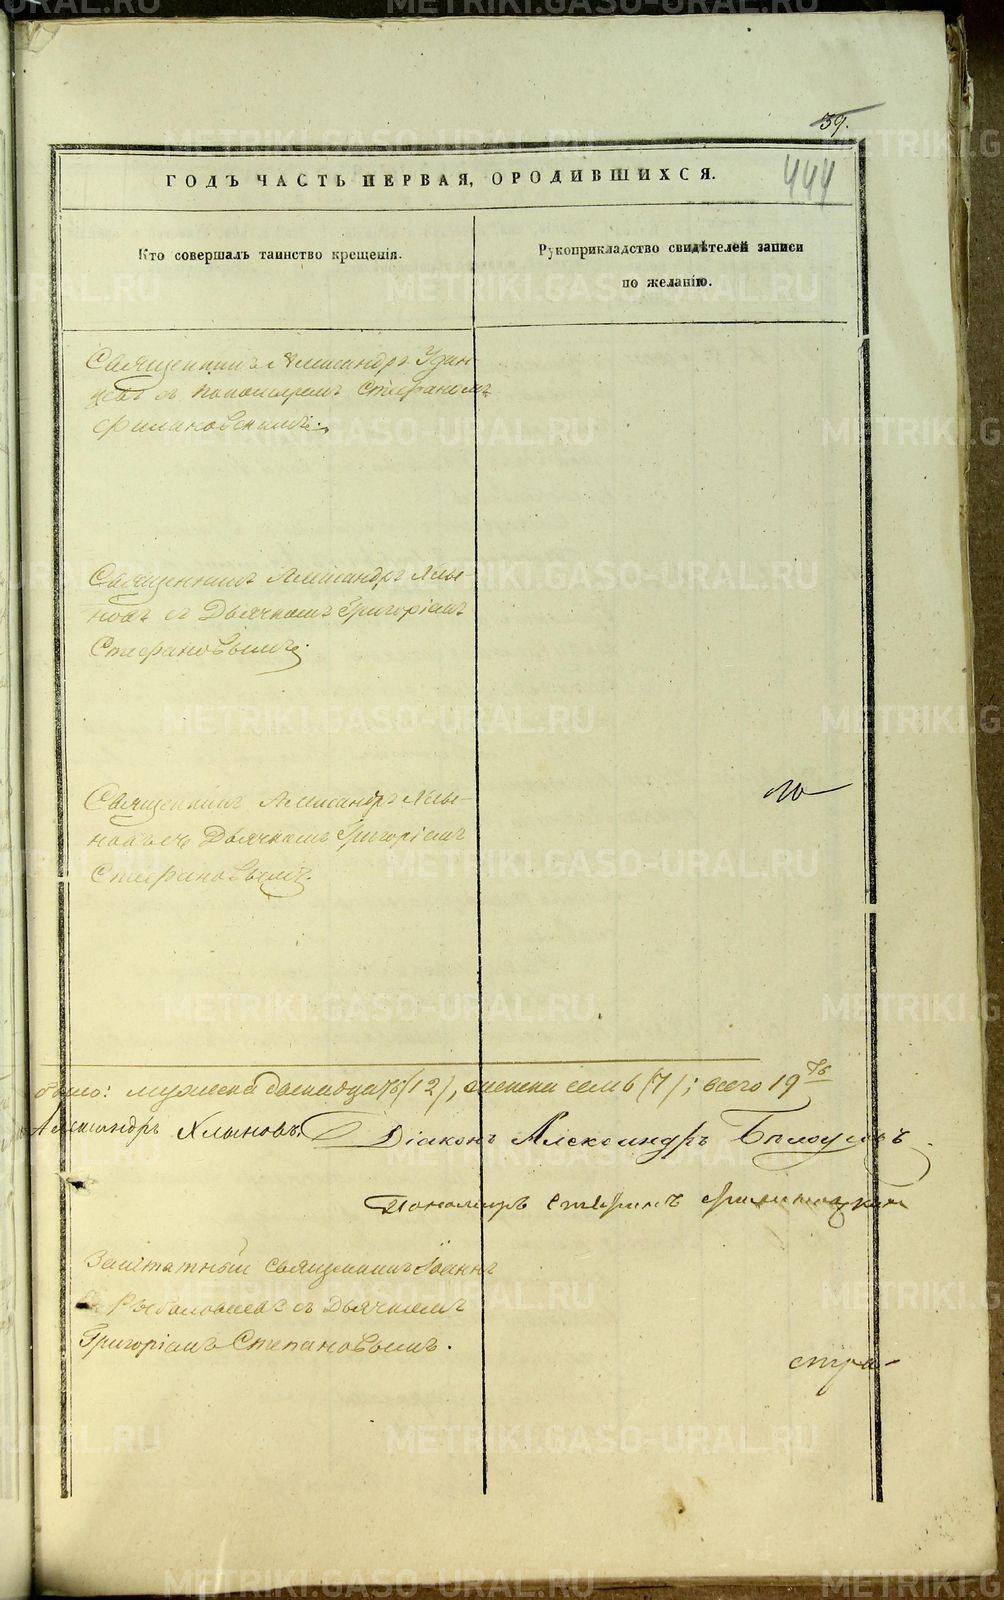 39.
444
ГОДЪ ЧАСТЬ ПЕРВАЯ, ОРОДИВШИХСЯ.
Кто совершалъ таинство крещенія.
Рукоприкладство свидѣтелей записи
по желанію.
Священникъ Александръ Удин-
цевъ съ Пономаремъ Стефаномъ
Филановскимъ.
Священникъ Александръ Хлы-
новъ съ Дьячкомъ Григоріемъ
Стефановымъ.
Священникъ Александръ Хлы-
новъ съ Дьячкомъ Григоріемъ
Стефановымъ.
было: мужеска двенадцать (12), женска семь (7); всего 19ть
Александръ Хлыновъ. Діаконъ Александръ Бѣлоусовъ
Пономарь Стефанъ
Заштатный Священникъ Іоаннъ
съ Дьячкомъ
Григоріемъ Степановымъ.
METRIKI.GASO-URAL.RU